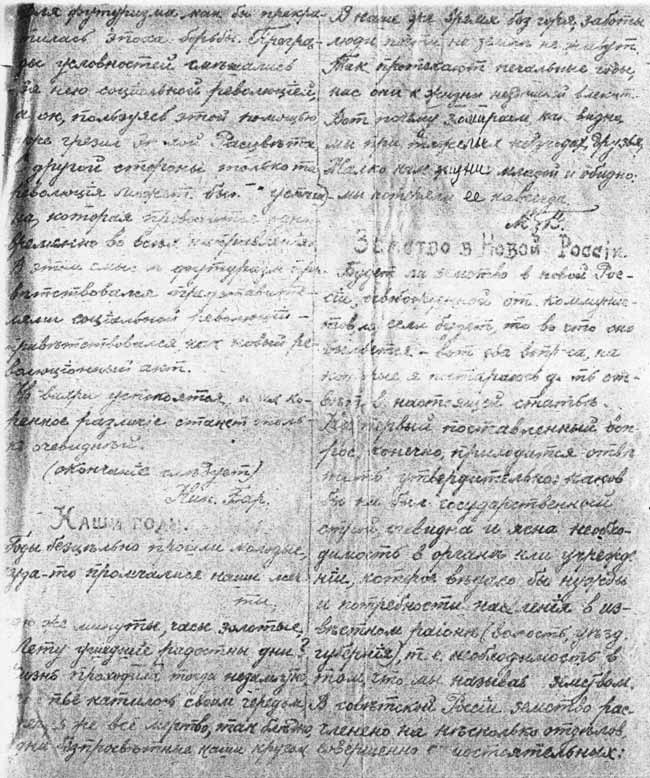 для футуризма как бы прекра-
тилась эпоха борьбы. Прегра-
ды условностей смешались
социальной революцией,
а он, пользуясь этой помощью
уже грезил
другой стороны только та
революция может быть
на, которая
временно во всех направлениях
В этом смысле футуризм при-
ветствовался представите-
лями социальной революции –
приветствовался как новый ре-
волюционный акт.
успокоятся, и их ко-
ренное различие станет толь-
ко очевидней.
(окончание следует)
Ник. Бар.
Наши годы.
Годы безцельно прошли молодые,
куда-то промчалися наши меч-
ты,
же минуты, часы золотые,
Лету ушедшие радостны дни?
Жизнь проходила тогда
катилось своим чередом,
же всё мертво, так бледно
дни безпросветные наши кругом
В наше же время без горя, заботы
люди почти на земле не живут.
Так протекают печальные годы,
нас они к жизни влекут.
Вот почему замираем мы видно
мы при тяжелых невзгодах, друзья,
Жалко нам жизни младой и обидно:
мы потеряли ее навсегда.
Земство в Новой России.
Будет ли земство в новой Рос-
сии, освобожденной от коммунис-
тов и, если будет, то во что оно
выльется – вот два вопроса, на
которые я постараюсь дать от-
вет в настоящей статье.
На первый поставленный воп-
рос, конечно, приходится отве-
чать утвердительно: каков
бы ни был государственный
строй, очевидна и ясна необхо-
димость в органе или учрежде-
нии, которое ведало бы нужды
и потребности населения в из-
вестном районе (волость, уезд,
губерния), т. е. необходимость в
том, что мы называем земством.
В советской России земство рас-
членено на несколько отделов,
совершенно самостоятельных: